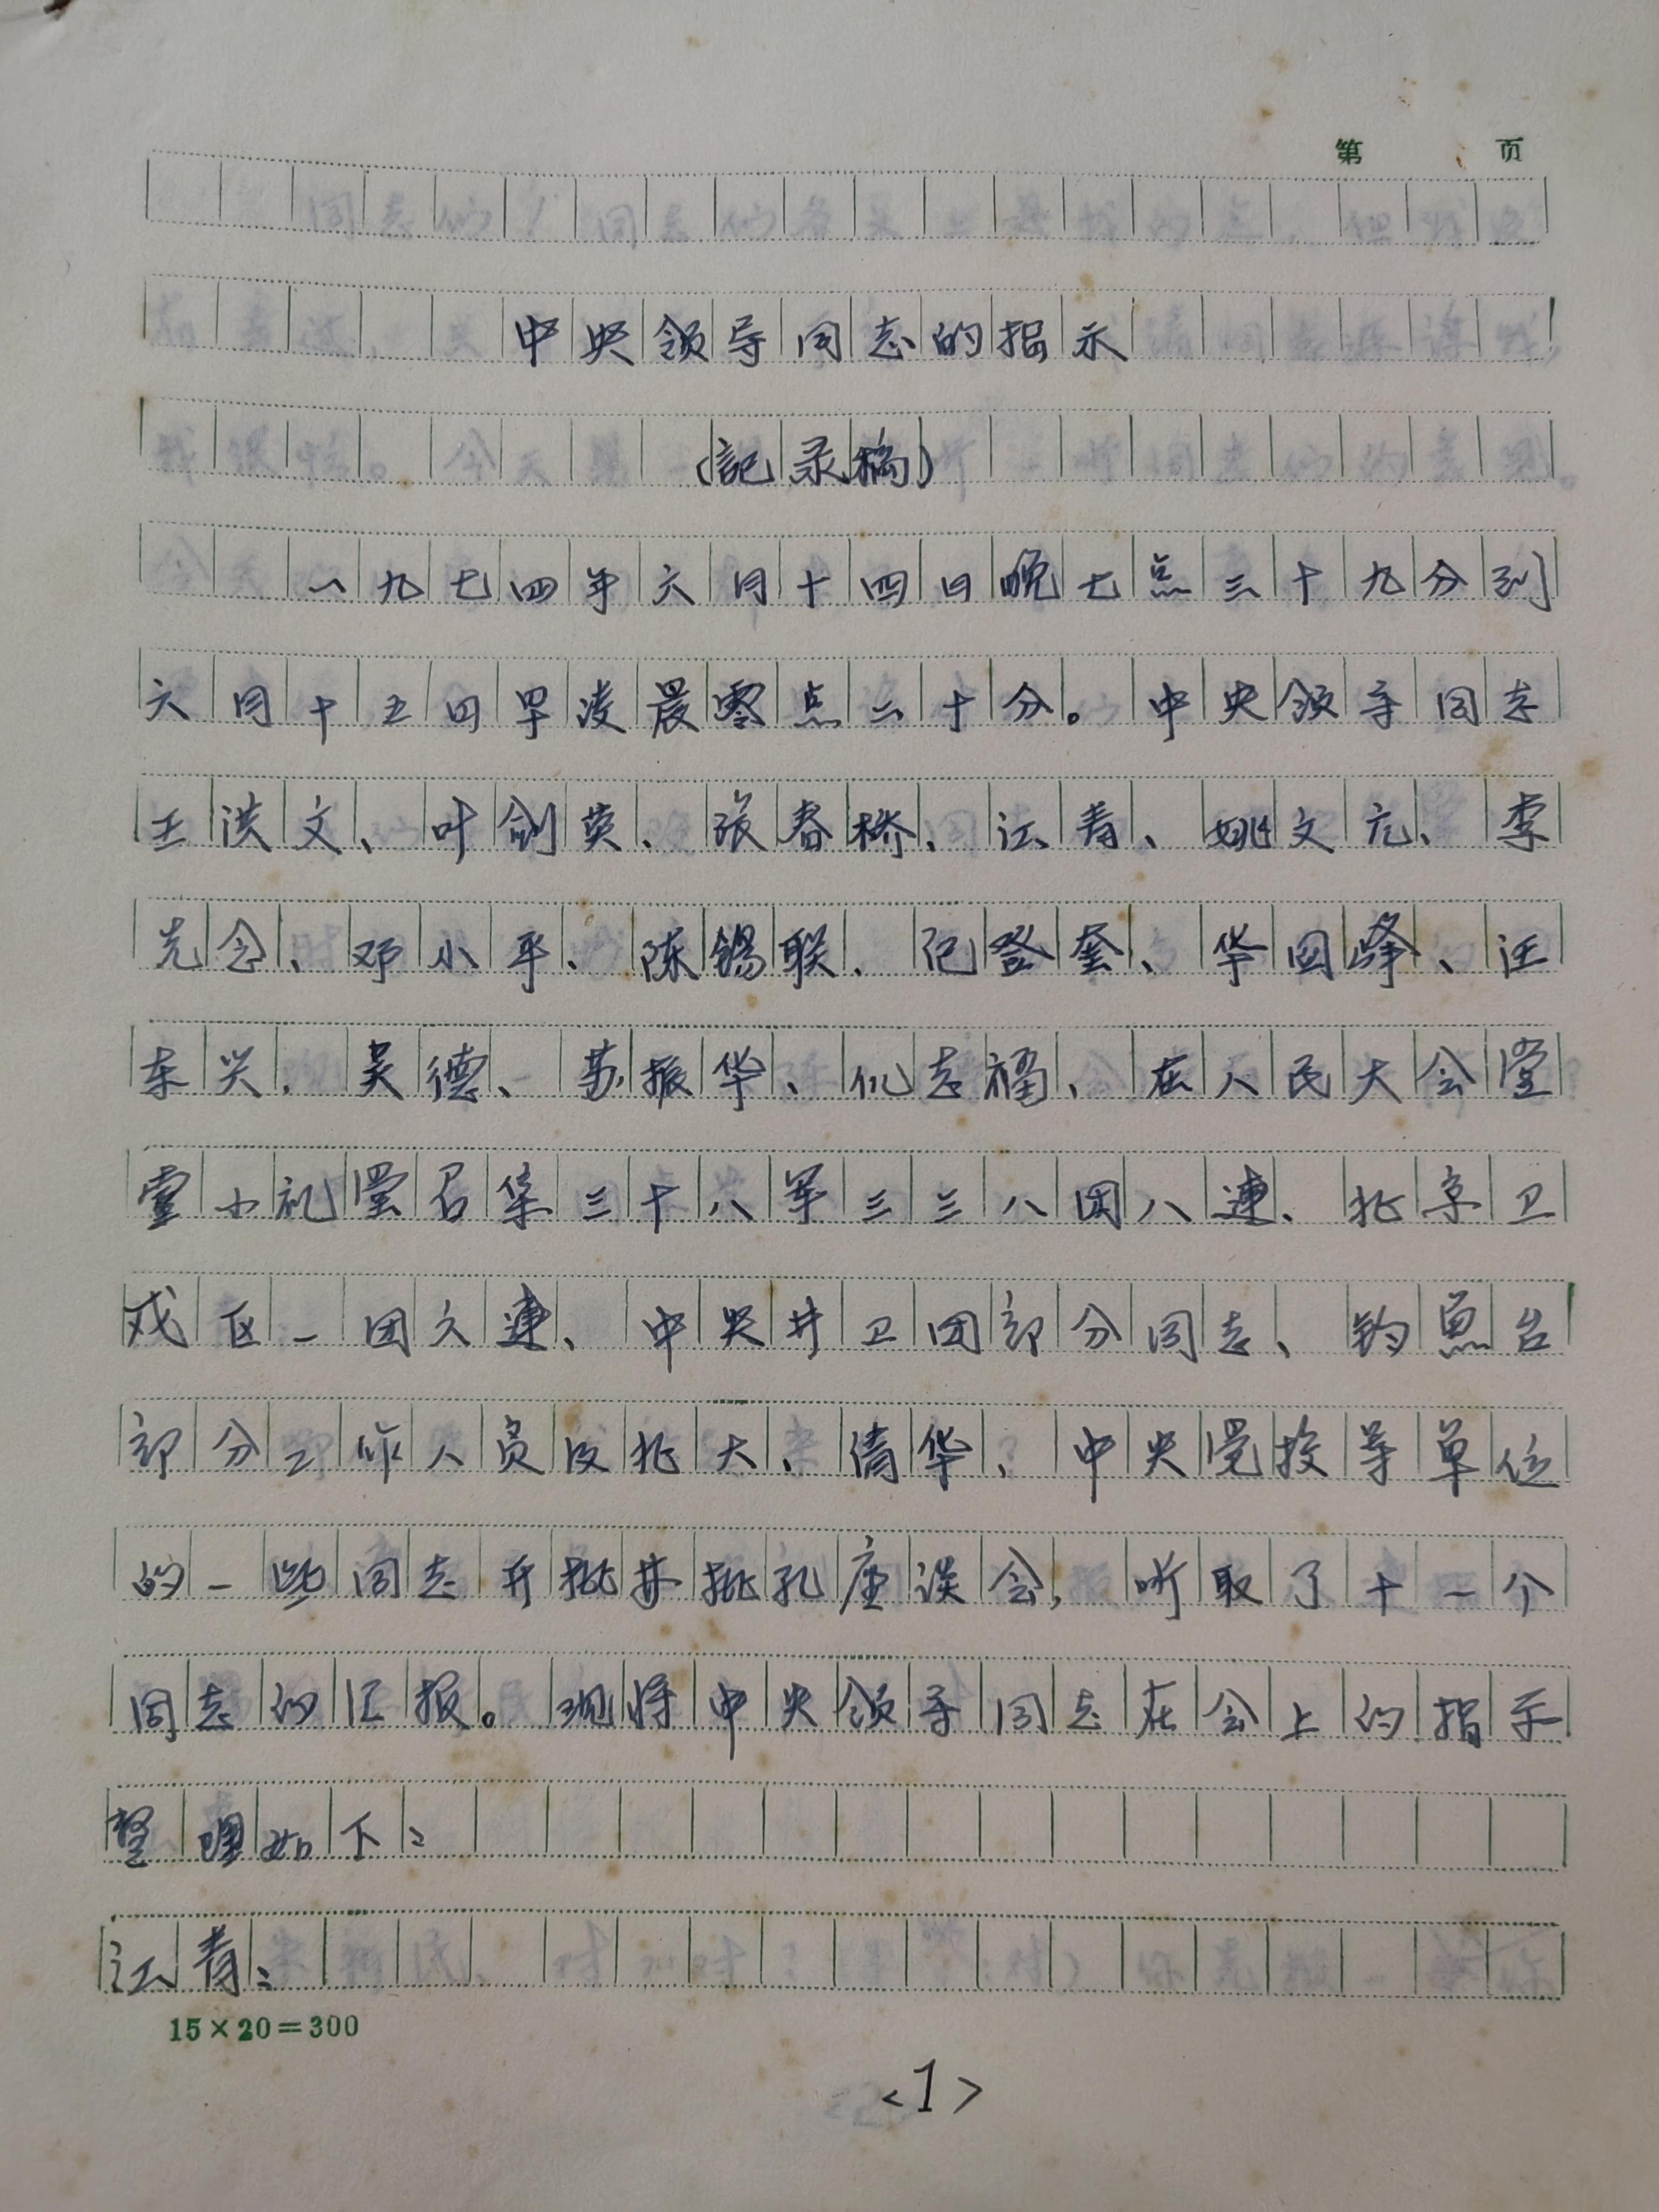 第 页
中央领导同志的指示
(記录稿)
一九七四年六月十四日晚七点三十九分到
六月十五日早凌晨零点二十分。中央领导同志
王洪文、叶剑英、張春桥、江青、姚文元、李
先念、邓小平、陈锡联、纪登奎、华国峰、汪
东兴、吴德、苏振华、倪志福、在人民大会堂
小礼堂召集三十八军三三八团八連、北京卫
戍区一团六連、中央井卫团部分同志、钓魚台
部分工作人员及北大、清华、中央党校等单位
的一些同志开批林批孔座谈会，听取了十一个
同志的汇报。现将中央领导同志在会上的指示
整理如下：
江青：
15×20=300
<1>